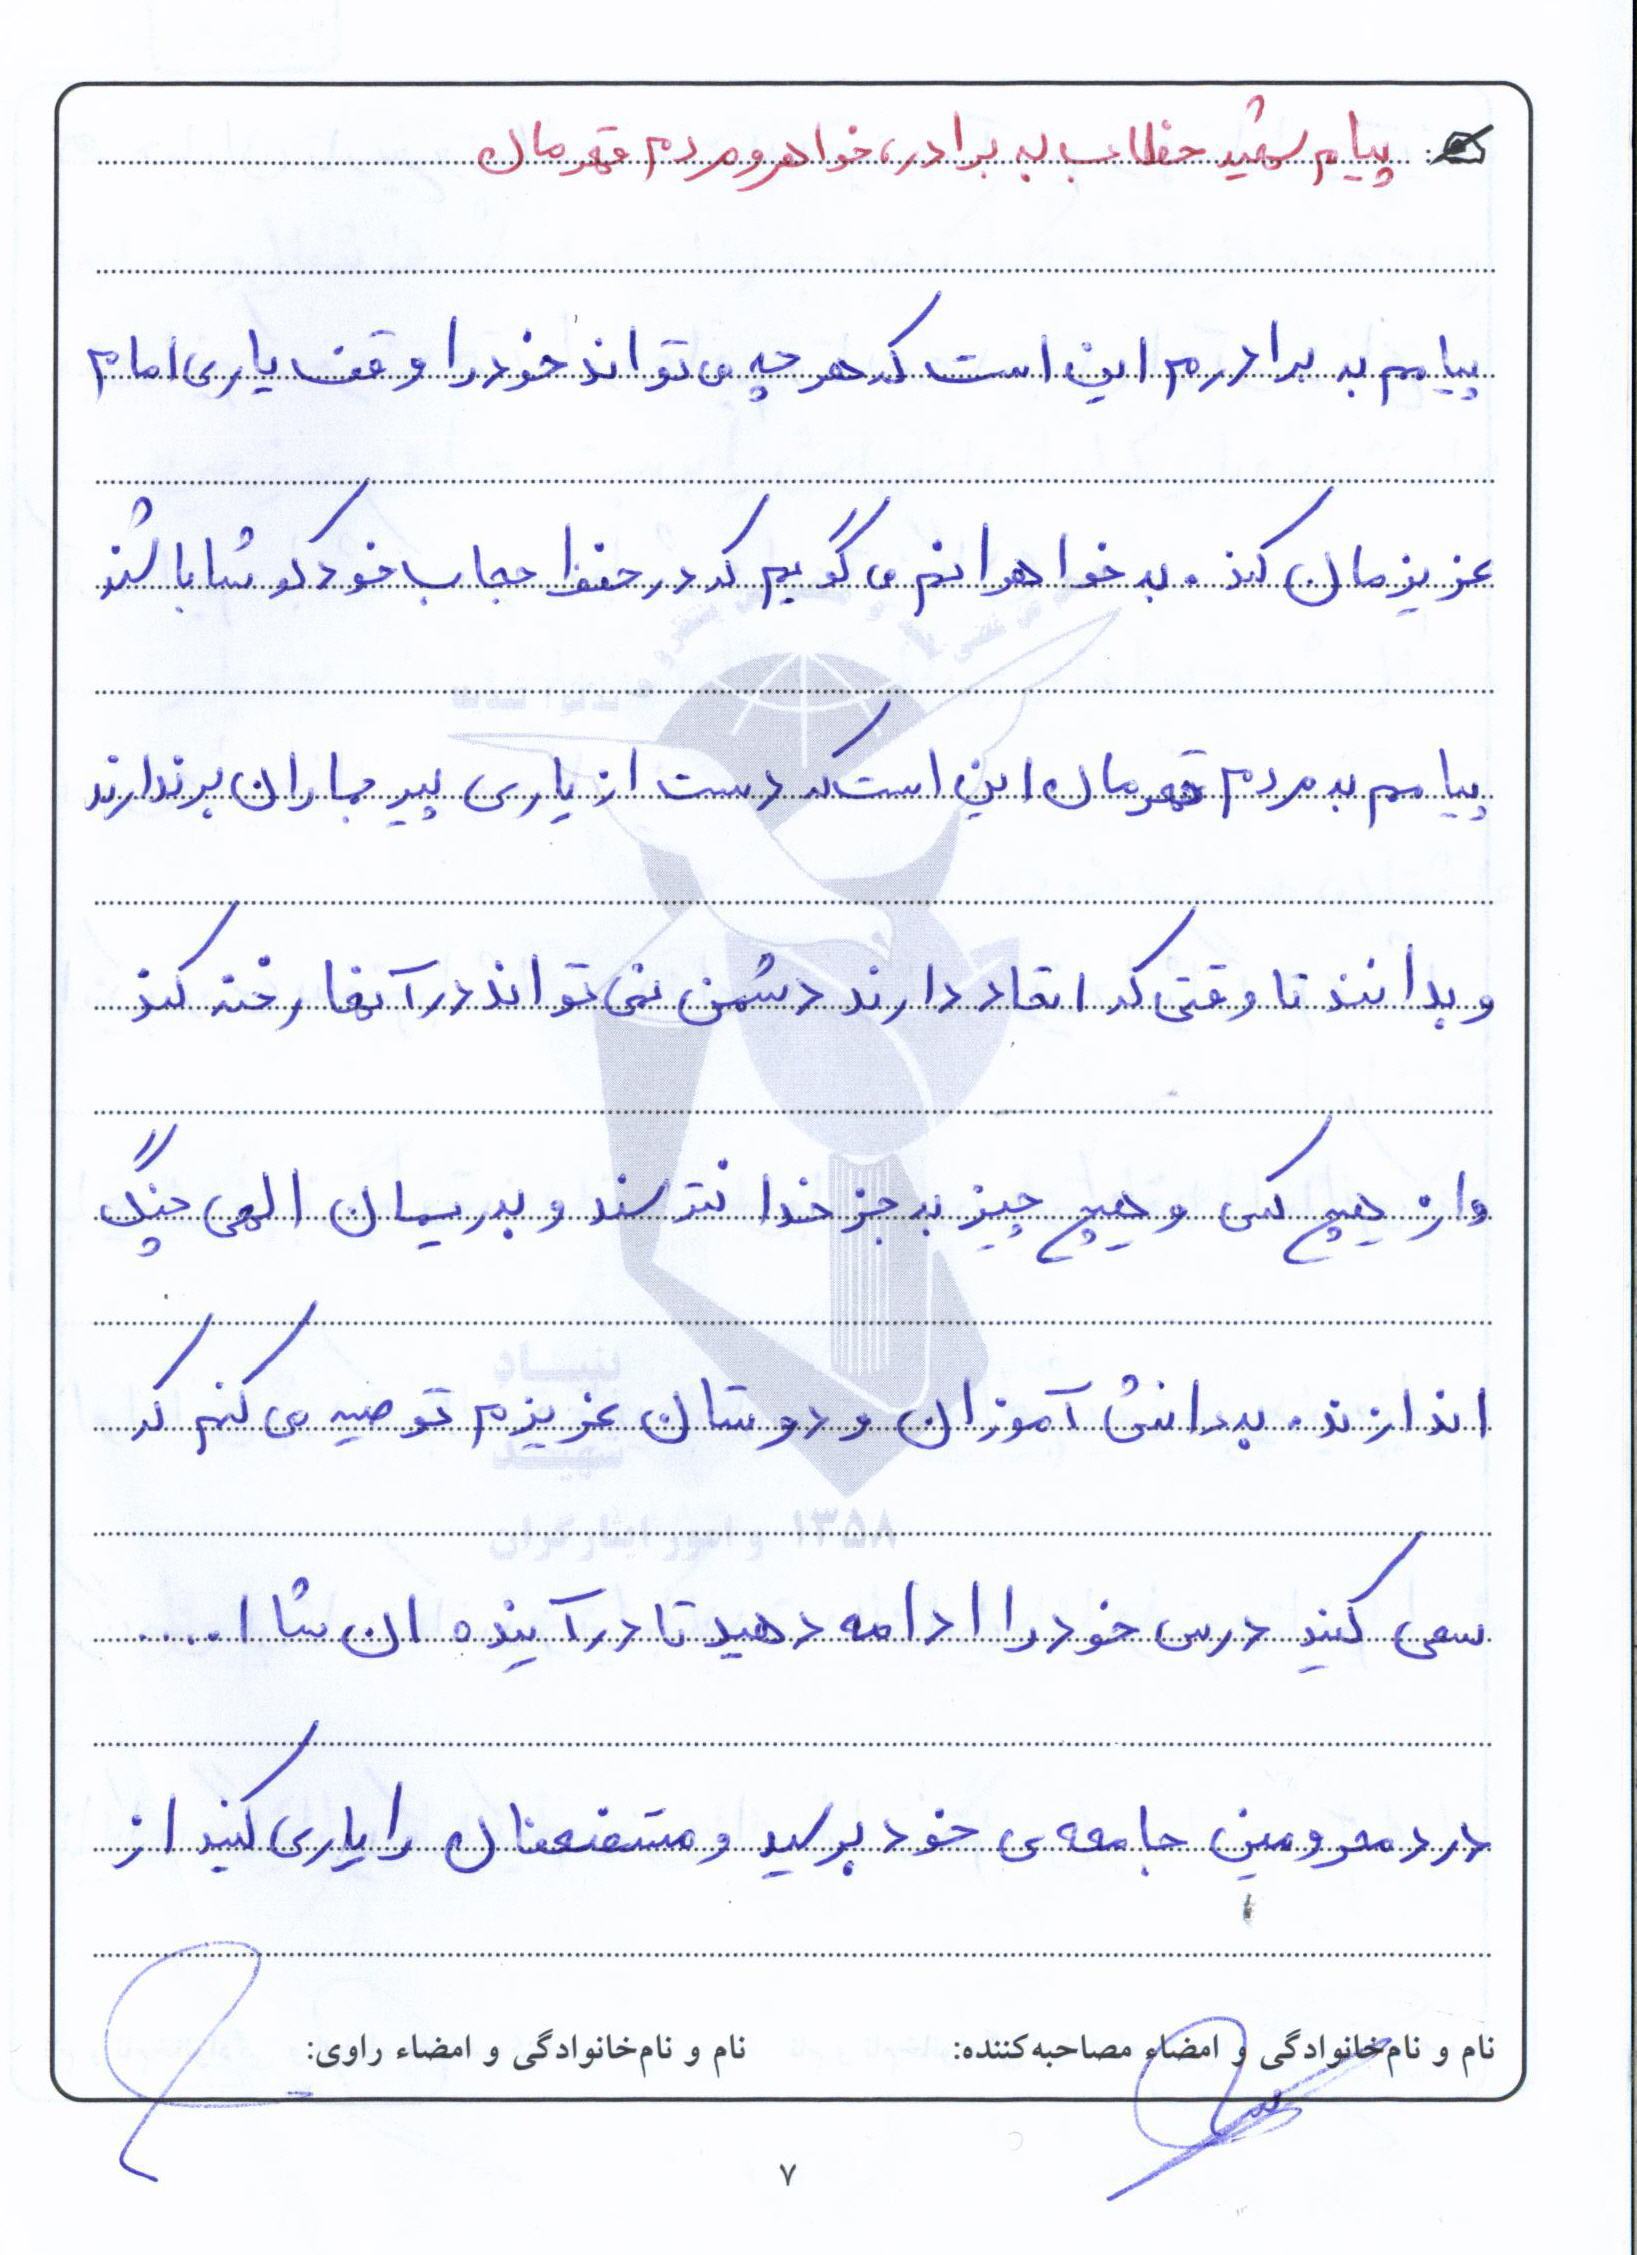 پیام شهید خطاب به برادر، خواهر و مردم قهرمان
پیامم به برادرم این است که هر چه می تواند خود را وقف یاری امام
عزیزمان کند . به خواهرانم می گویم که در حفظ حجاب خود کوشا باشند
پیامم به مردم قهرمان این است که دست از یاری پیر جماران برندارند
و بدانند تا وقتی که اتحاد دارند دشمن نمی تواند در آنها رخنه کند
و از هیچ کس و هیچ چیز به جز خدا نترسند و به ریسمان الهی چنگ
اندازند . به دانش آموزان و دوستان عزیزم توصیه می کنم که
سعی کنید درس خود را ادامه دهید تا در آینده ان شا ا.....
درد محرومین جامعه ی خود برسید و مستضعفان را یاری کنید از
بنیاد
شهید
۱۳۵۸ و امور ایثارگران
نام و نام‌خانوادگی و امضاء مصاحبه‌کننده: نام و نام‌خانوادگی و امضاء راوی:
۷